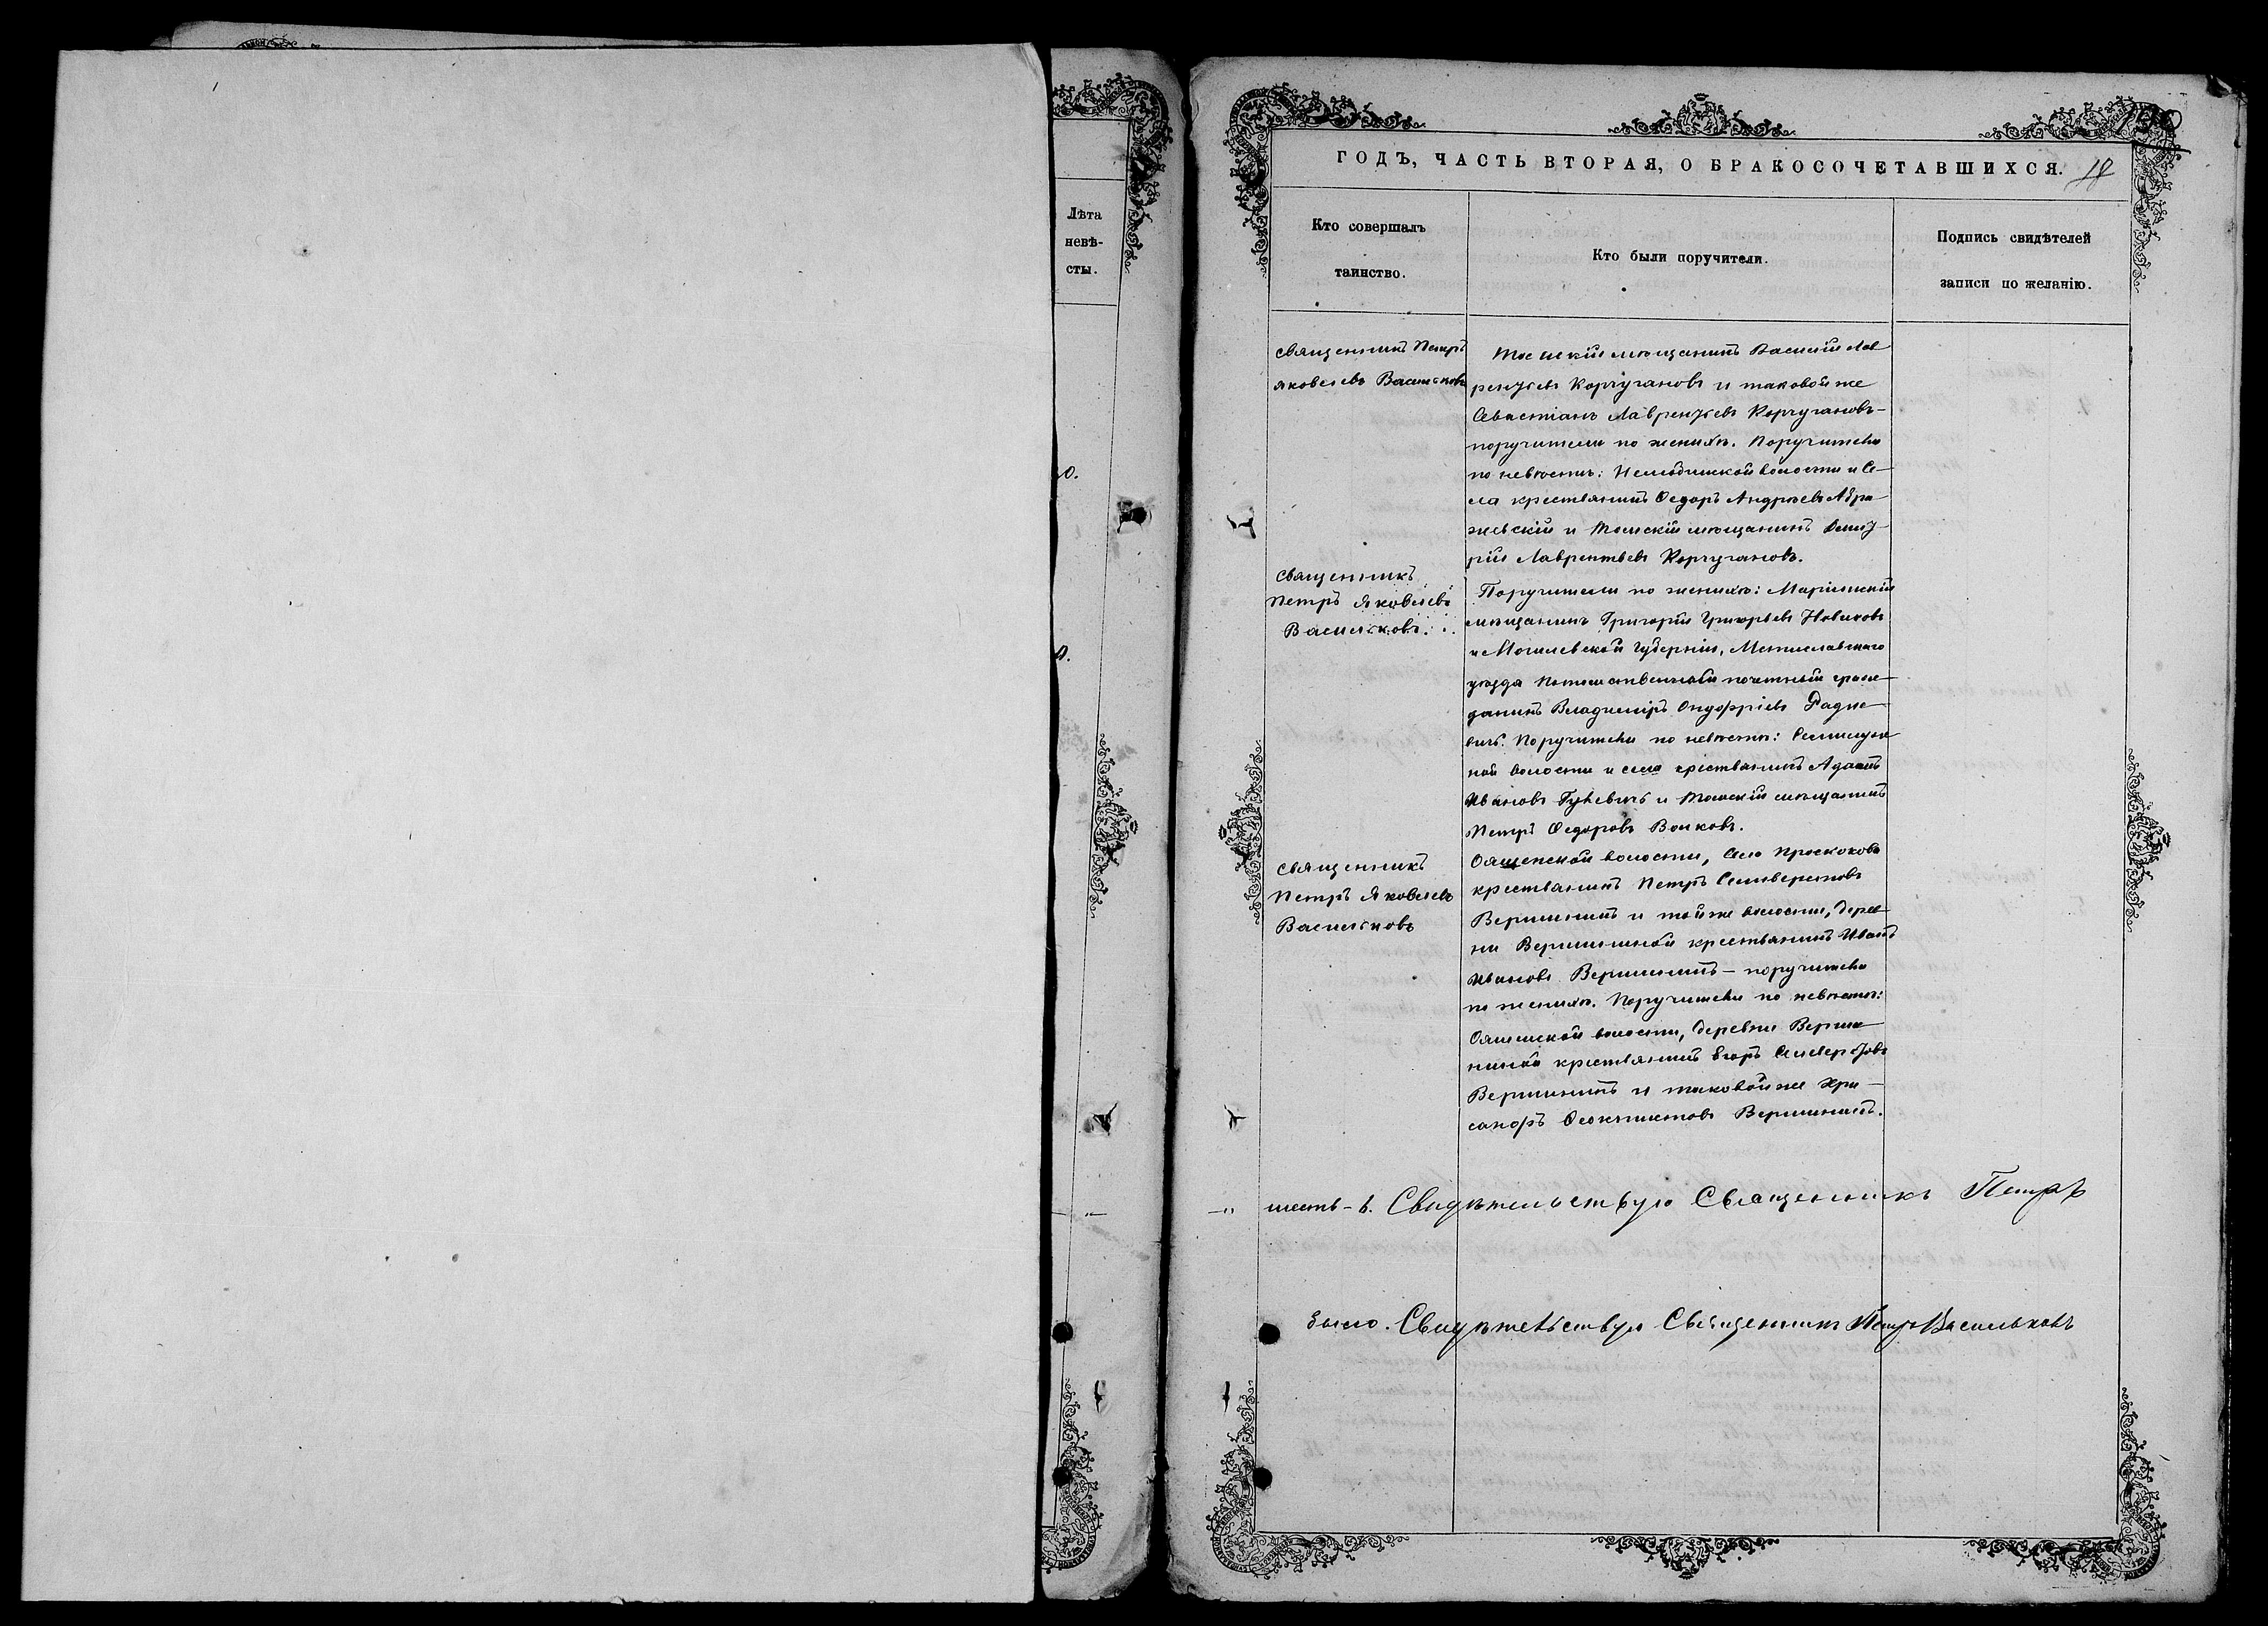 Лѣта
невѣ-
сты.
ГОДЪ, ЧАСТЬ ВТОРАЯ, О БРАКОСОЧЕТАВШИХСЯ. 18
Кто совершалъ
таинство.
Кто были поручители.
Подпись свидѣтелей
записи по желанію.
Священникъ Петръ
Яковлевъ Васильковъ
Томскій мѣщанинъ Василій Лав
рентьевъ Корчугановъ и таковой же
Севастіанъ Лаврентьевъ Корчугановъ –
поручители по женихѣ. Поручители
по невѣстѣ: волости и Се–
ла крестьянинъ Ѳедоръ Андреевъ Абра–
жевскій и Томскій мѣщанинъ Дмит–
рій Лаврентьевъ Корчугановъ.
Священникъ
Петръ Яковлевъ
Васильковъ.
Поручители по женихѣ: Маріинскій
мѣщанинъ Григорій Григорьевъ Новиковъ
и Могилевской губерніи, Мстиславскаго
уѣзда потомственный почетный граж–
данинъ Владиміръ Онуфріевъ Радке–
вичъ. Поручители по невѣстѣ: Семилуж–
ной волости и села крестьянинъ Адамъ
Ивановъ Гукевичъ и Томскій мѣщанинъ
Петръ Ѳедоровъ Волковъ.
Священникъ
Петръ Яковлевъ
Васильковъ
Ояшенской волости, села Проскокова
крестьянинъ Петръ Селиверстовъ
Вершининъ и той же волости, дерев–
ни Вершининой крестьянинъ Иванъ
Ивановъ Вершининъ – поручители
по женихѣ. Поручители по невѣстѣ:
Ояшинской волости, деревни Верши–
ниной крестьянинъ Егоръ Селиверстовъ
Вершининъ и таковой же Хри–
санфъ Ѳеоктистовъ Вершининъ.
шесть – 6. Свидѣтельствую Священникъ Петръ
было. Свидѣтельствую Священникъ Петръ Васильковъ